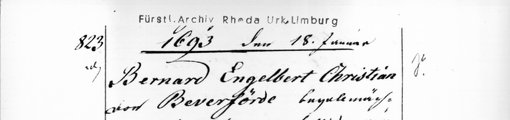 Fürstl. Archiv Rheda Urk. Limburg
823
1693 den 18. Januar
Bernard Engelbert Christian
von Beverförde